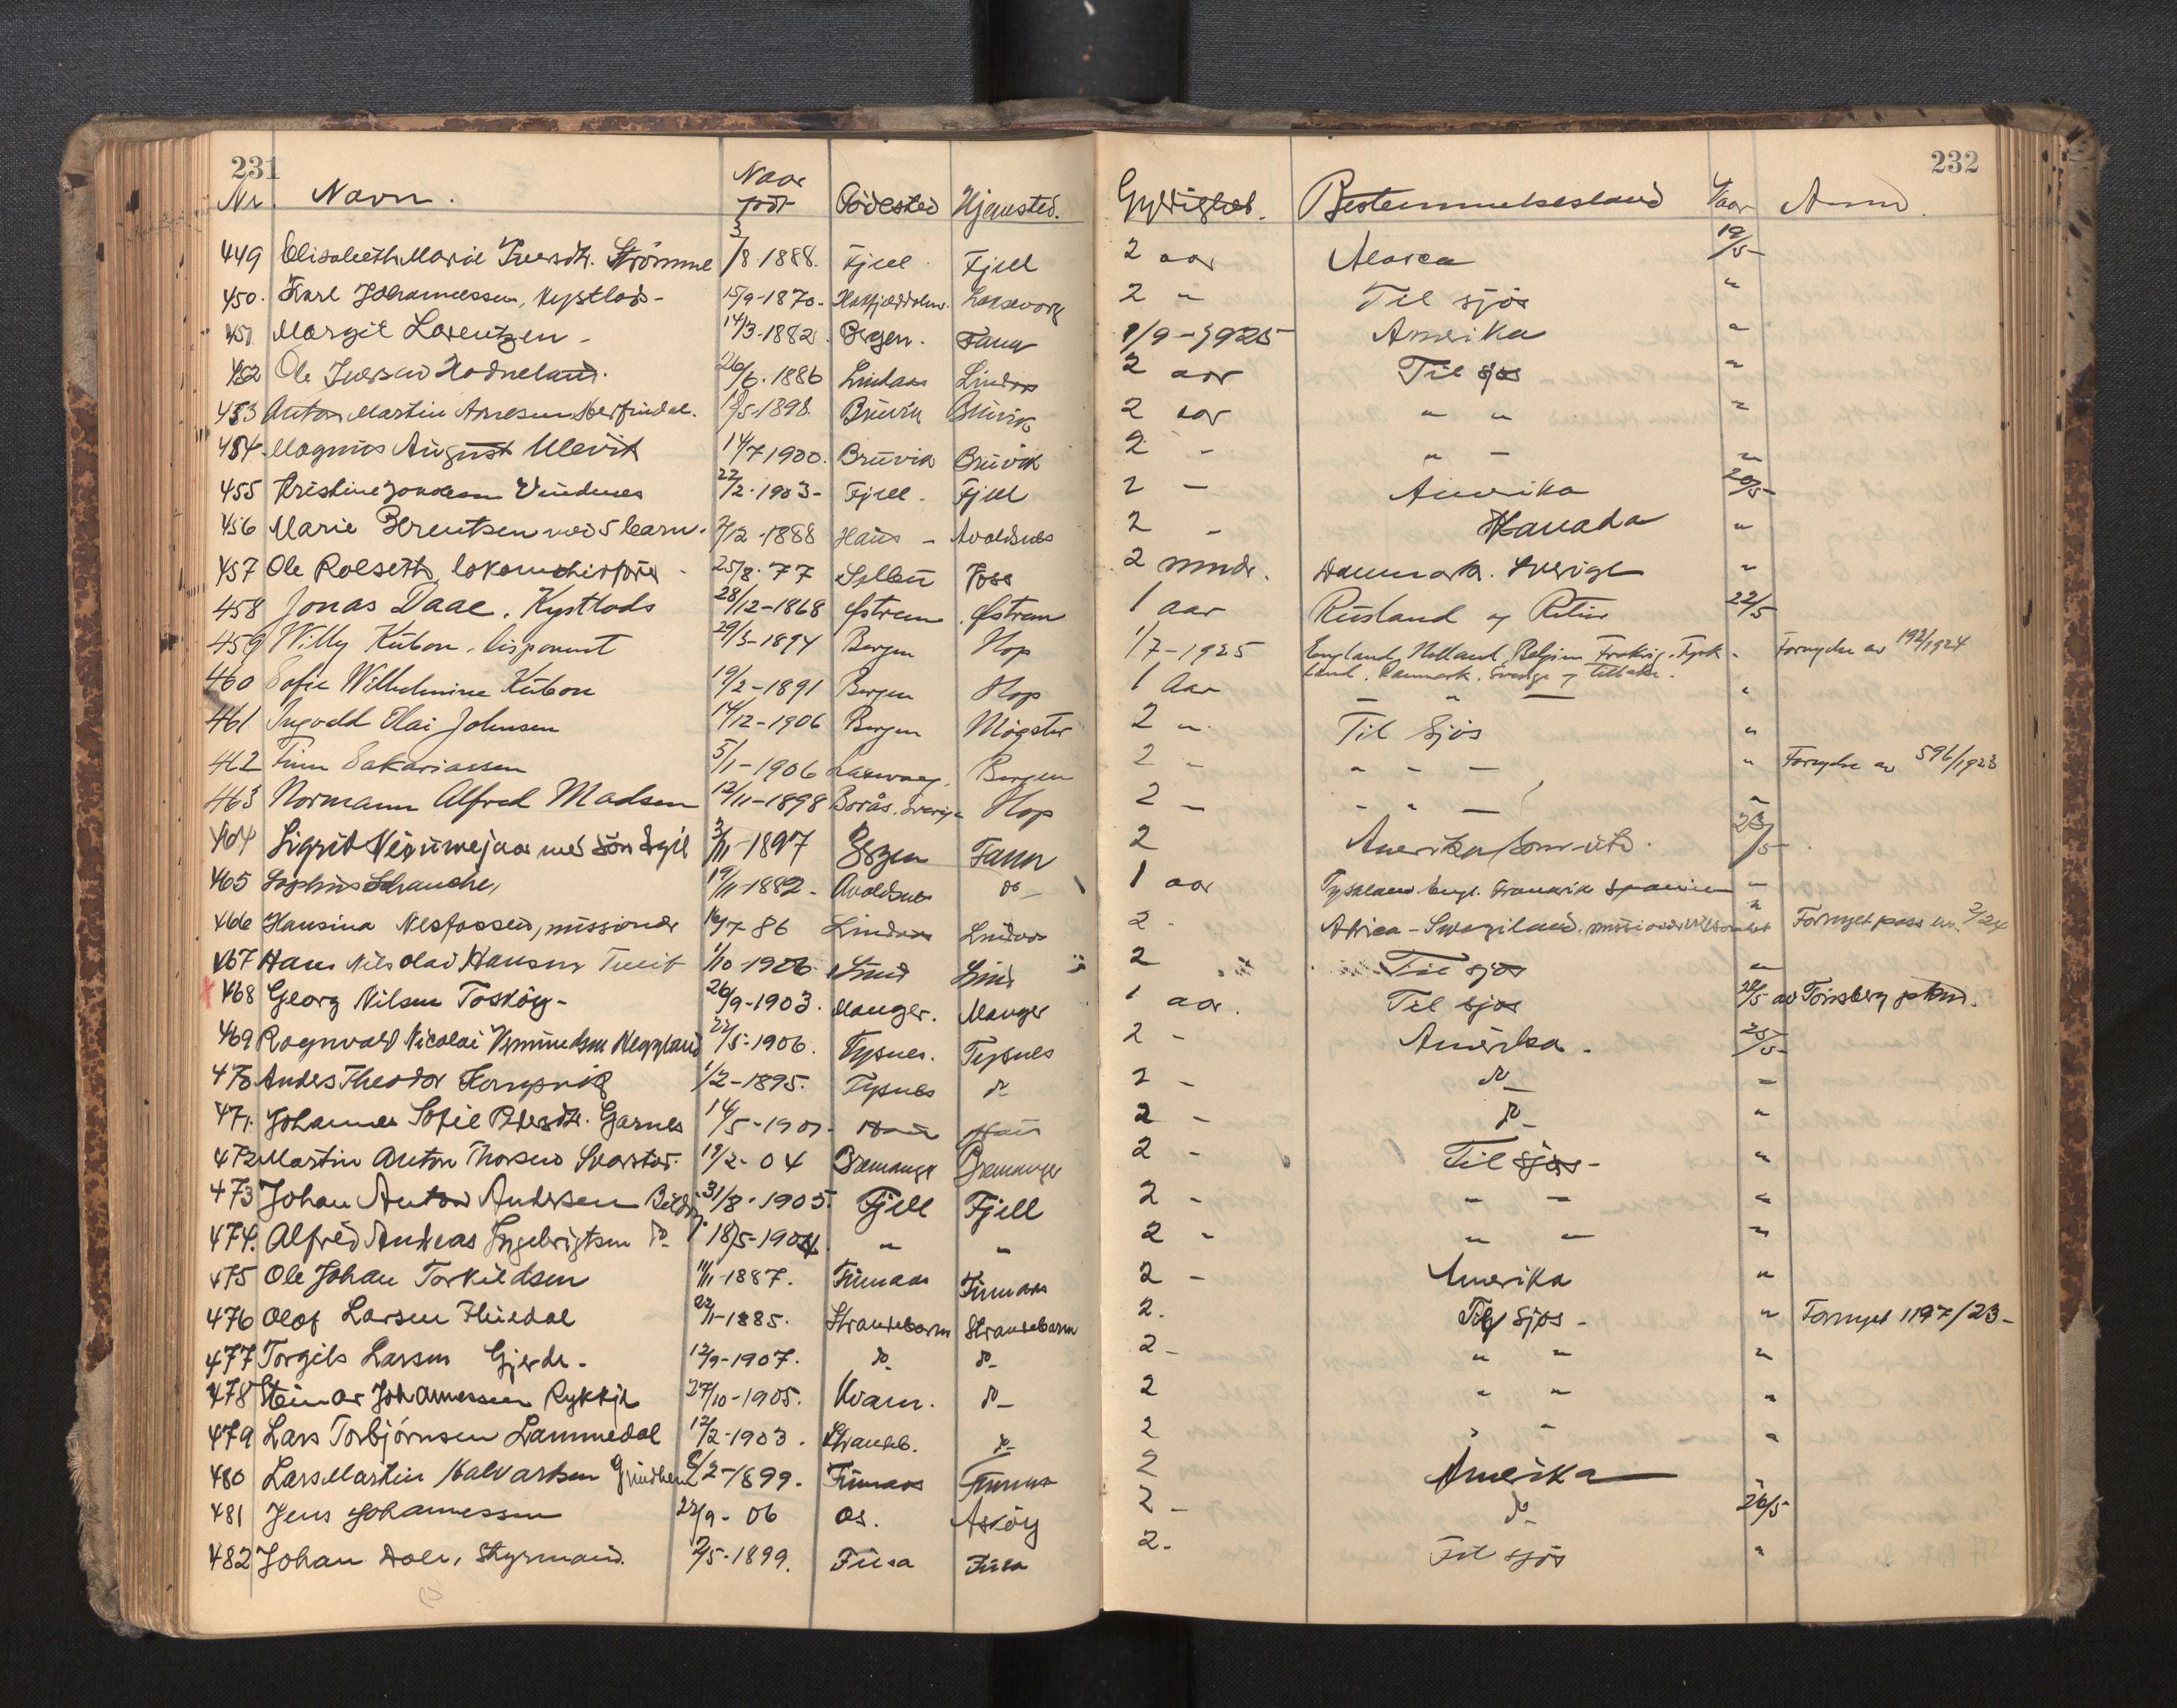 231
232
Nr. Navn. Naar født Födested Hjemsted. Gyldighet. Bestemmelsesland Naar Anm.
449 Elisabeth Marie Iversdtr. Strömme 3/8-1888. Fjell Fjell 2 aar 19/5
450. Karl Johannessen, Kystlods- 15/9-1870- Laksevaag 2 " Til sjøs "
451 Margit Lorentzen - 14/3-1882. Bergen. Fana 1/9-1925 Amerika "
452 Ole Iversen Hodneland. 26/6.1886 Lindaas Lindaas 2 aar Til sjøs "
453 Anton Martin Arnesen Herfindal. 18/5-1898. Bruvik Bruvik 2 aar " " "
454. Magnus August Ulevik 14/7 1900. Bruvik Bruvik 2 - " - "
455 Kristine Vindenes 22/2-1903- Fjell. Fjell 2 - Amerika 20/5-
456 Marie Berentsen med 5 barn. 7/12-1888 Haus - Avaldsnes 2 - Kanada "
457 Ole Rolseth, 25/8.77 Voss 2 mndr. Danmark. Sverige "
458 Jonas Daae. Kystlods 28/12-1868 Østrem. Østrem 1 aar Rusland og Retur 22/5
459 Willy Kubon, disponent 29/3-1894 Bergen Hop 1/7-1925 England, Holland, Belgien, Frankrig. Tysk- - Fornyelse av 192/1924
land. Danmark. Sverige og tilbake.
460 Sofie Wilhelmine Kubon 19/2-1891 Bergen Hop 1 Aar - " - "
461 Ingvald Elai Johnsen 14/12-1906 Bergen Møgster 2 " Til Sjøs "
462 Finn Sakariassen 5/1-1906 Laxevaag. Bergen 2 - " - - " Fornyelse av 596/1923
463 Normann Alfred Madsen 12/11-1898 Borås. Sverige Hop 2 - - " - "
464 Sigrid med sön Egil 3/11-1897 Bergen Fana 2 Amerika 23/5-
465 19/11-1882- Avaldsnes do - 1 aar Tyskland Engl. Frankrik Spanien -
466 Hansina Nesfossen, missionær 16/7-86 Lindaas Lindaas 2 - Africa - Swaziland. "  Fornyet pass nr. 2/24
467 Hans Nils Olai Hansen Tveit 1/10-1906 2 Til sjøs -
468 Georg Nilsen Toskög- 26/9-1903. Manger. Manger 1 aar. Til sjøs 24/5 av Tönsberg
469 Ragnvald Nicolai Heggland 22/5-1906. Tysnes. Tysnes 2 - Amerika. 25/5-
470 Anders Theodor 1/2-1895. Tysnes do 2 - do -
471. Johanne Sofie Pedersdtr. Garnes 14/5-1901- Haus Haus 2 - do - "
472 Martin Anton 19/2-04 Bremanger Bremanger 2 - Til sjøs - "
473 Johan Anton Andersen Bildöy 31/8-1905. Fjell Fjell 2 - - - "
474. Alfred Andreas Ingebrigtsen do 18/5-1904 " " 2 - " - "
475 Ole Johan Torkildsen 11/11-1887. Finnaas Finnaas 2 - Amerika "
476 Olof Larsen 22/1-1885. Strandebarm Strandebarm 2. Til sjøs - " Fornyet 1197/23-
477 Torgils Larsen Gjerde. 12/9-1907. do do 2 - " " "
478 Steinar Johannessen Rykkje 27/10-1905. Kvam. do - 2 " " "
479 Lars Torbjörnsen Lammedal 12/2-1903. Strandeb. do 2 " " "
480 Lars Martin Halvardsen Grindheim 8/2-1899. Finnaas Finnaas 2 Amerika "
481 Jens Johannessen 22/9-06 Os. Asköy 2 - do 26/5
482 Johan Dale, Styrmand. 2/5-1899. Fusa Fusa 2. Til sjøs "